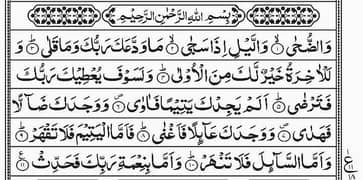 بِسْمِ اللهِ الرَّحْمٰنِ الرَّحِيْمِ
وَالضُّحٰى ۙ۝۱ وَالَّيْلِ اِذَا سَجٰى ۙ۝۲ مَا وَدَّعَكَ رَبُّكَ وَمَا قَلٰى ؕ۝۳ وَ
لَلْاٰخِرَةُ خَيْرٌ لَّكَ مِنَ الْاُوْلٰى ؕ۝۴ وَلَسَوْفَ يُعْطِيْكَ رَبُّكَ
فَتَرْضٰى ؕ۝۵ اَلَمْ يَجِدْكَ يَتِيْمًا فَاٰوٰى ۪۝۶ وَوَجَدَكَ ضَآلًّا
فَهَدٰى ۪۝۷ وَوَجَدَكَ عَآىِٕلًا فَاَغْنٰى ؕ۝۸ فَاَمَّا الْيَتِيْمَ فَلَا تَقْهَرْ ؕ۝۹
وَاَمَّا السَّآىِٕلَ فَلَا تَنْهَرْ ؕ۝۱۰ وَاَمَّا بِنِعْمَةِ رَبِّكَ فَحَدِّثْ ۠۝۱۱